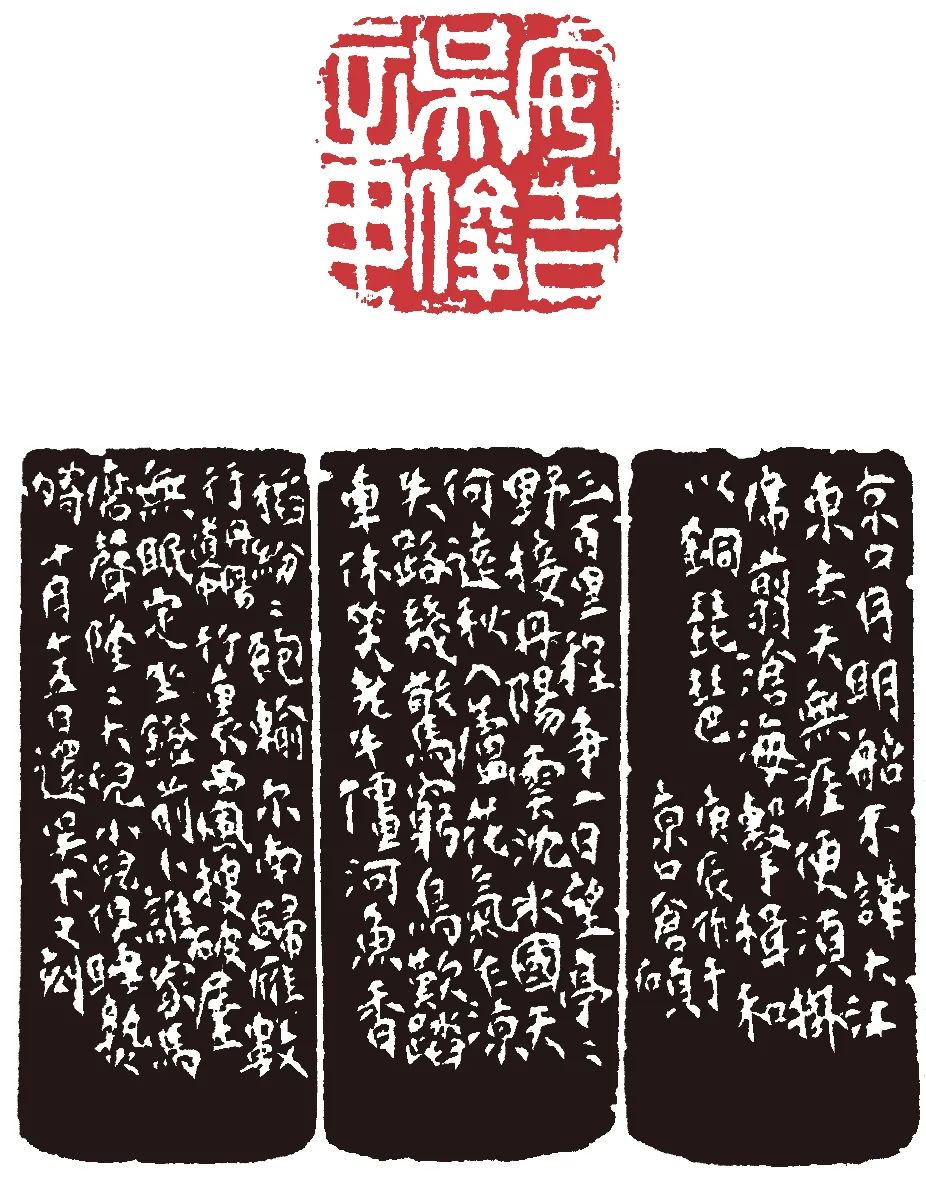 安吉
吳俊
章
京口月明船不譁大江
東去天無涯便須掛
席翦滄海擊楫和
以銅琵琶 庚辰作于
京口倉碩
三百里程爭一日望亭〻
野接丹陽雲沈水國天
何遠秋入蘆花氣乍涼
失路幾驚窮鳥歎踏
車休笑老牛僵河魚香
稻紛〻飽輸尔南歸雁數
行 丹陽道中 行裏西風搜破屋
無眠定坐鐙前卜誰家馬
磨聲隆〻大兒小兒俱睡熟
十月十五日還吳下又刻